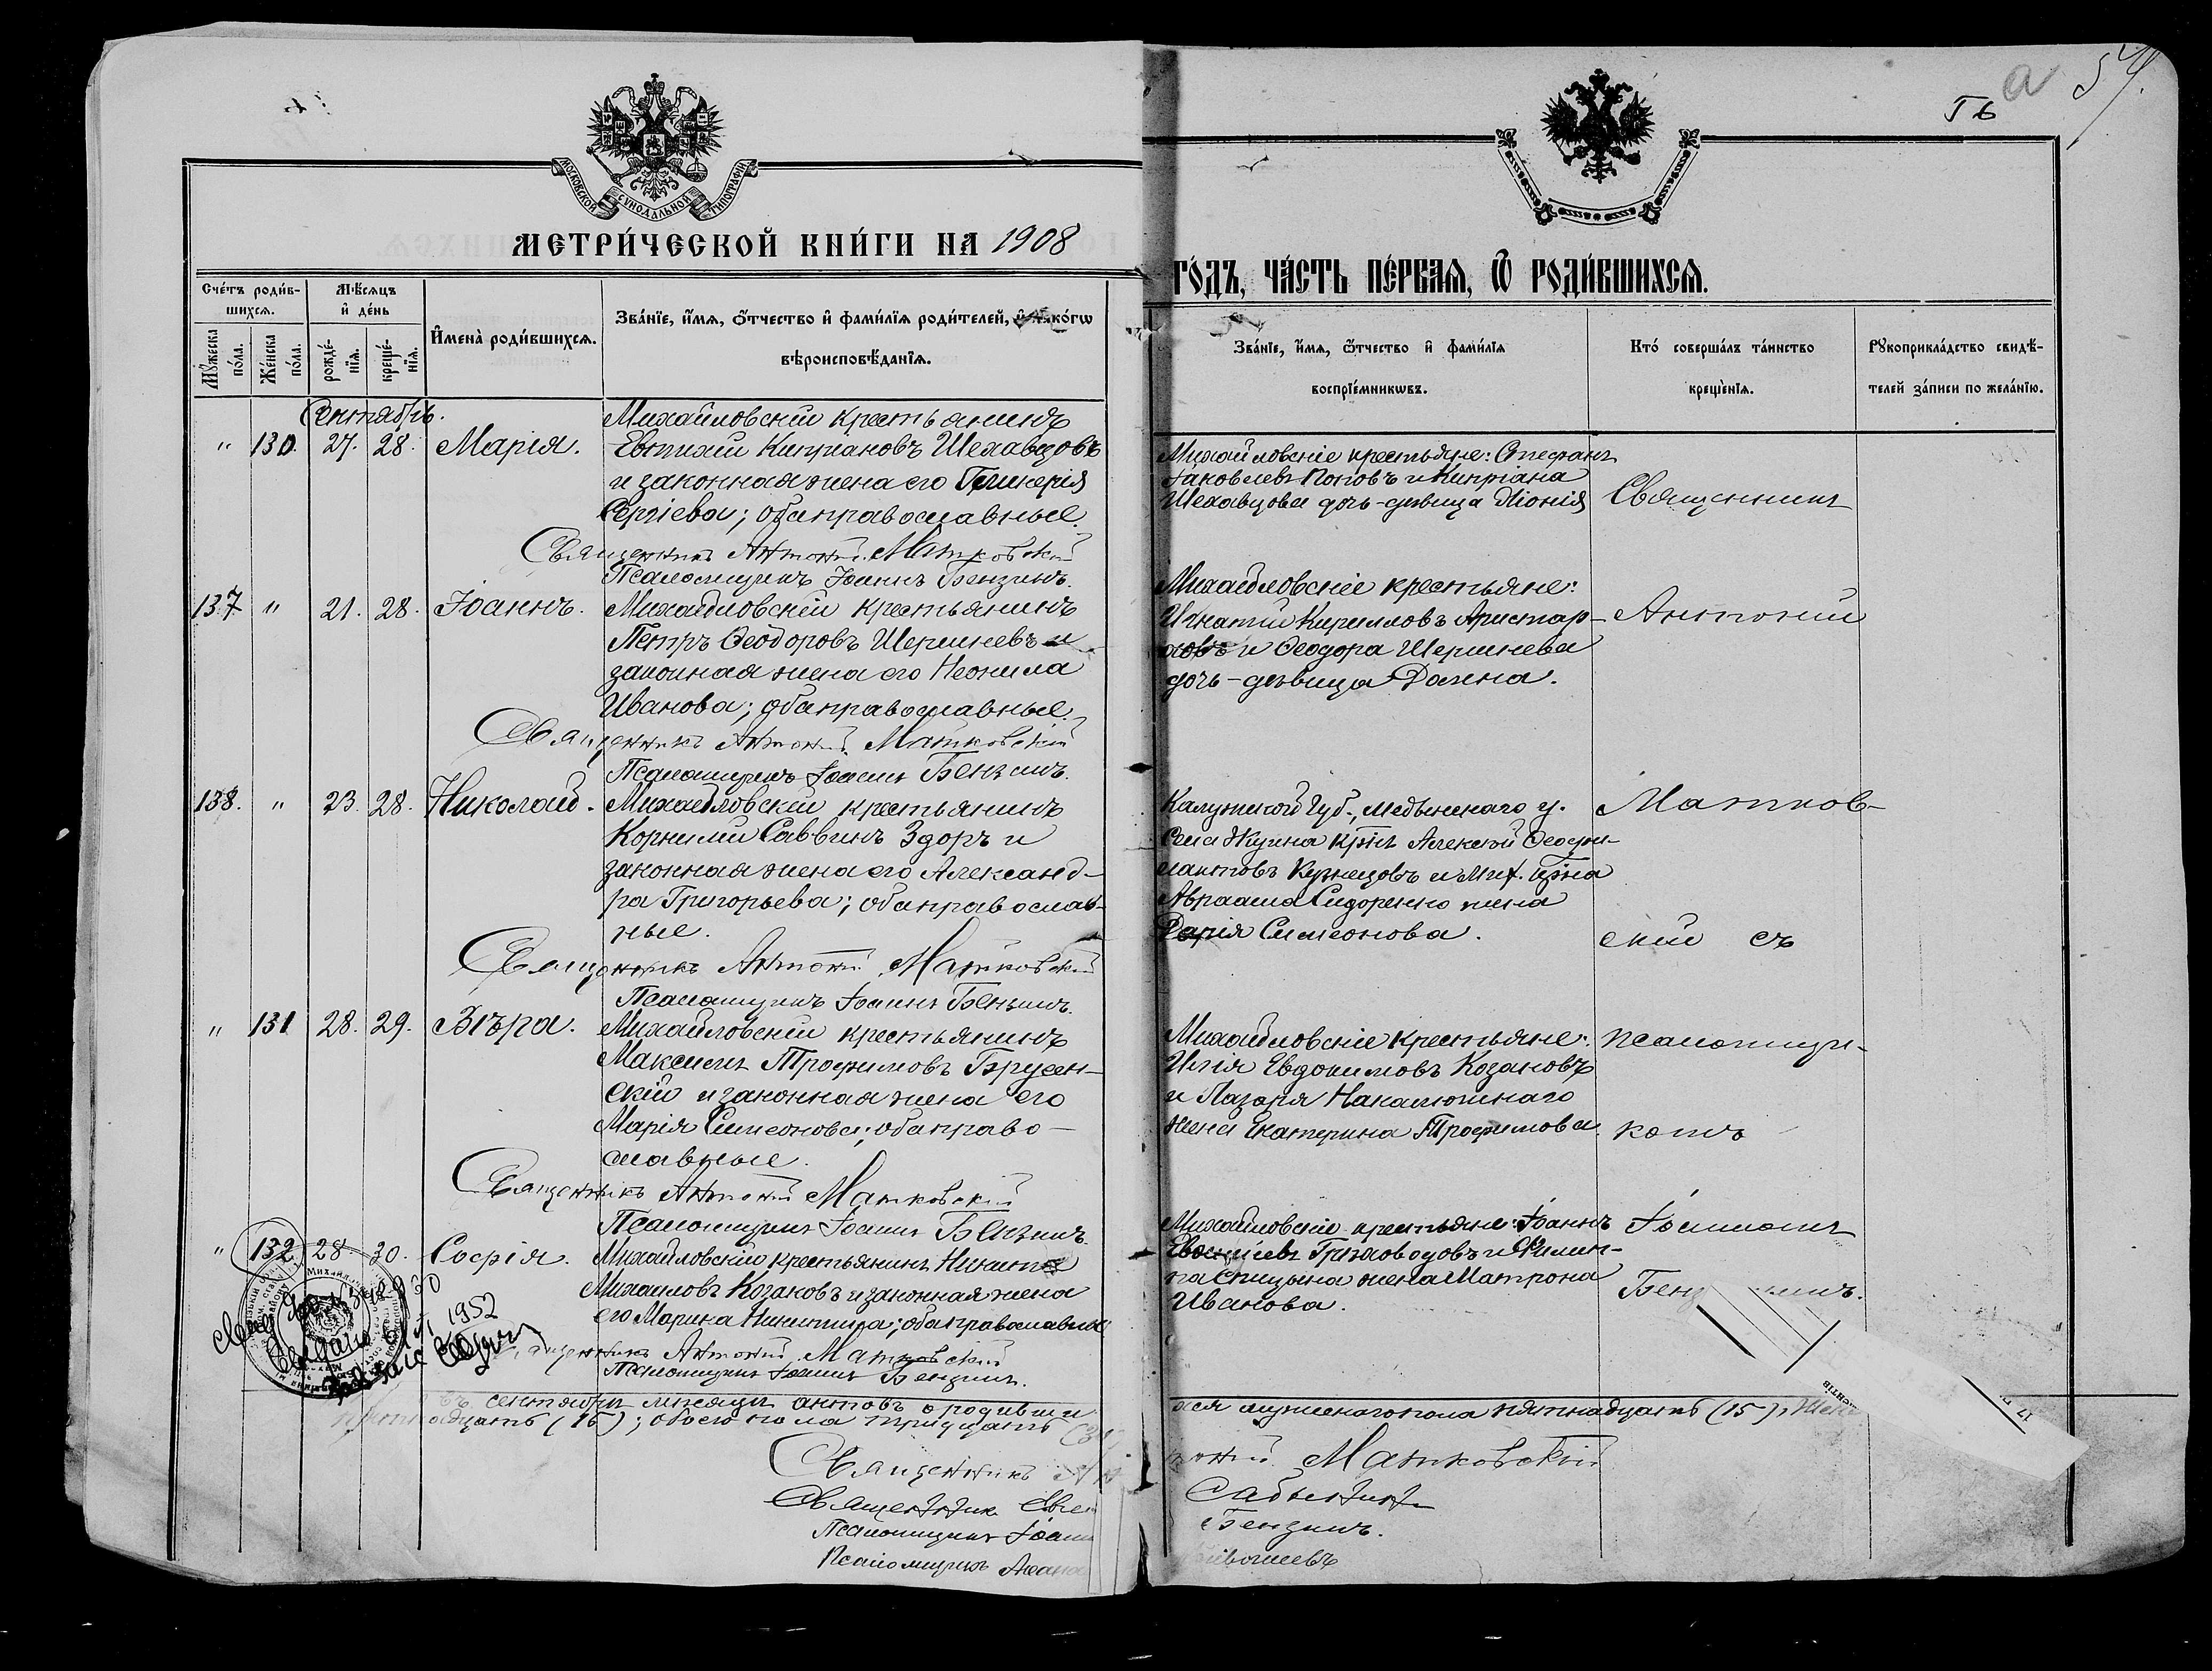 Тв а 57.
МОСКОВСКОЙ СѴНОДАЛЬНОЙ ТИПОГРАФІИ
МЕТРИ́ЧЕСКОЙ КНИ́ГИ НА 1908
ГО́ДЪ, ЧА́СТЬ ПЕ́РВАЯ, Ѿ РОДИ́ВШИХСЯ.
Сче́тъ роди́в-
шихся.
Мѣ́сяцъ
и҆ де́нь
Мꙋ́жеска по́ла.
Же́нска по́ла.
рожде́-
нїя.
креще́-
нїя.
И҆мена̀ роди́вшихся.
Зва́нїе, и҆́мя, ѻ҆́тчество и҆ фами́лїя роди́телей, и҆ како́гѡ
вѣроисповѣ́данїя.
Зва́нїе, и҆́мя, ѻ҆́тчество и҆ фами́лїя
воспрїе́мникѡвъ.
Кто́ соверша́лъ та́инство
креще́нїя.
Рꙋкоприкла́дство свидѣ́-
телей за́писи по жела́нїю.
Сентябрь.
" 130. 27. 28. Марія.
Михайловскій крестьянинъ
Евтихій Кипріановъ Шехавцовъ
и законная жена его Гликерія
Сергіева; оба православные.
Священникъ Антоній Матковскій
Псаломщикъ Іоаннъ Бензинъ.
Михайловскіе крестьяне: Стефанъ
Іаковлевъ Поповъ и Кипріана
Шехавцова дочь-девица Хіонія
Священникъ
137 " 21. 28. Іоаннъ.
Михайловскій крестьянинъ
Петръ Ѳеодоровъ Шершневъ и
законная жена его Неонила
Иванова; оба православные.
Священникъ Антоній Матковскій
Псаломщикъ Іоаннъ Бензинъ.
Михайловскіе крестьяне:
Игнатій Кирилловъ Аристар-
ховъ и Ѳеодора Шершнева
дочь-девица Домна.
Антоній
138. " 23. 28. Николай.
Михайловскій крестьянинъ
Корнилій Саввинъ Здоръ и
законная жена его Александ-
ра Григорьева; оба православ-
ные.
Священникъ Антоній Матковскій
Псаломщикъ Іоаннъ Бензинъ.
Калужской губ., Медынскаго у.
села крнъ Алексѣй Ѳеофи-
лактовъ Кузнецовъ и Мих. крнна
Авраама Сидоренко жена
Дарія Симеонова.
Матков-
скій съ
" 131 28. 29. Вѣра.
Михайловскій крестьянинъ
Максимъ Трофимовъ Брусен-
скій и законная жена его
Марія Симеонова; оба право-
славные.
Священникъ Антоній Матковскій
Псаломщикъ Іоаннъ Бензинъ.
Михайловскіе крестьяне:
Илія Евдокимовъ Козаковъ
и Лазаря
жена Екатерина Трофимова.
псаломщи-
комъ
" 132 28. 30. Софія.
Михайловскій крестьянинъ Никита
Михаиловъ Козаковъ и законная жена
его Марина Никитина; оба православные
Священникъ Антоній Матковскій
Псаломщикъ Іоаннъ Бензинъ.
Михайловскіе крестьяне: Іоаннъ
Гриховодовъ и Филип-
па Спицына жена Матрона
Иванова.
Іоанномъ
Бензинымъ.
1952
въ сентябрѣ мѣсяцѣ актовъ о родивши
хся мужескаго пола пятнадцать (15), жен
пятнадцать (15); обоего пола тридцать (30)
Священникъ Антоній Матковскій
Священникъ
Псаломщикъ Іоаннъ Бензинъ.
Псаломщикъ
17